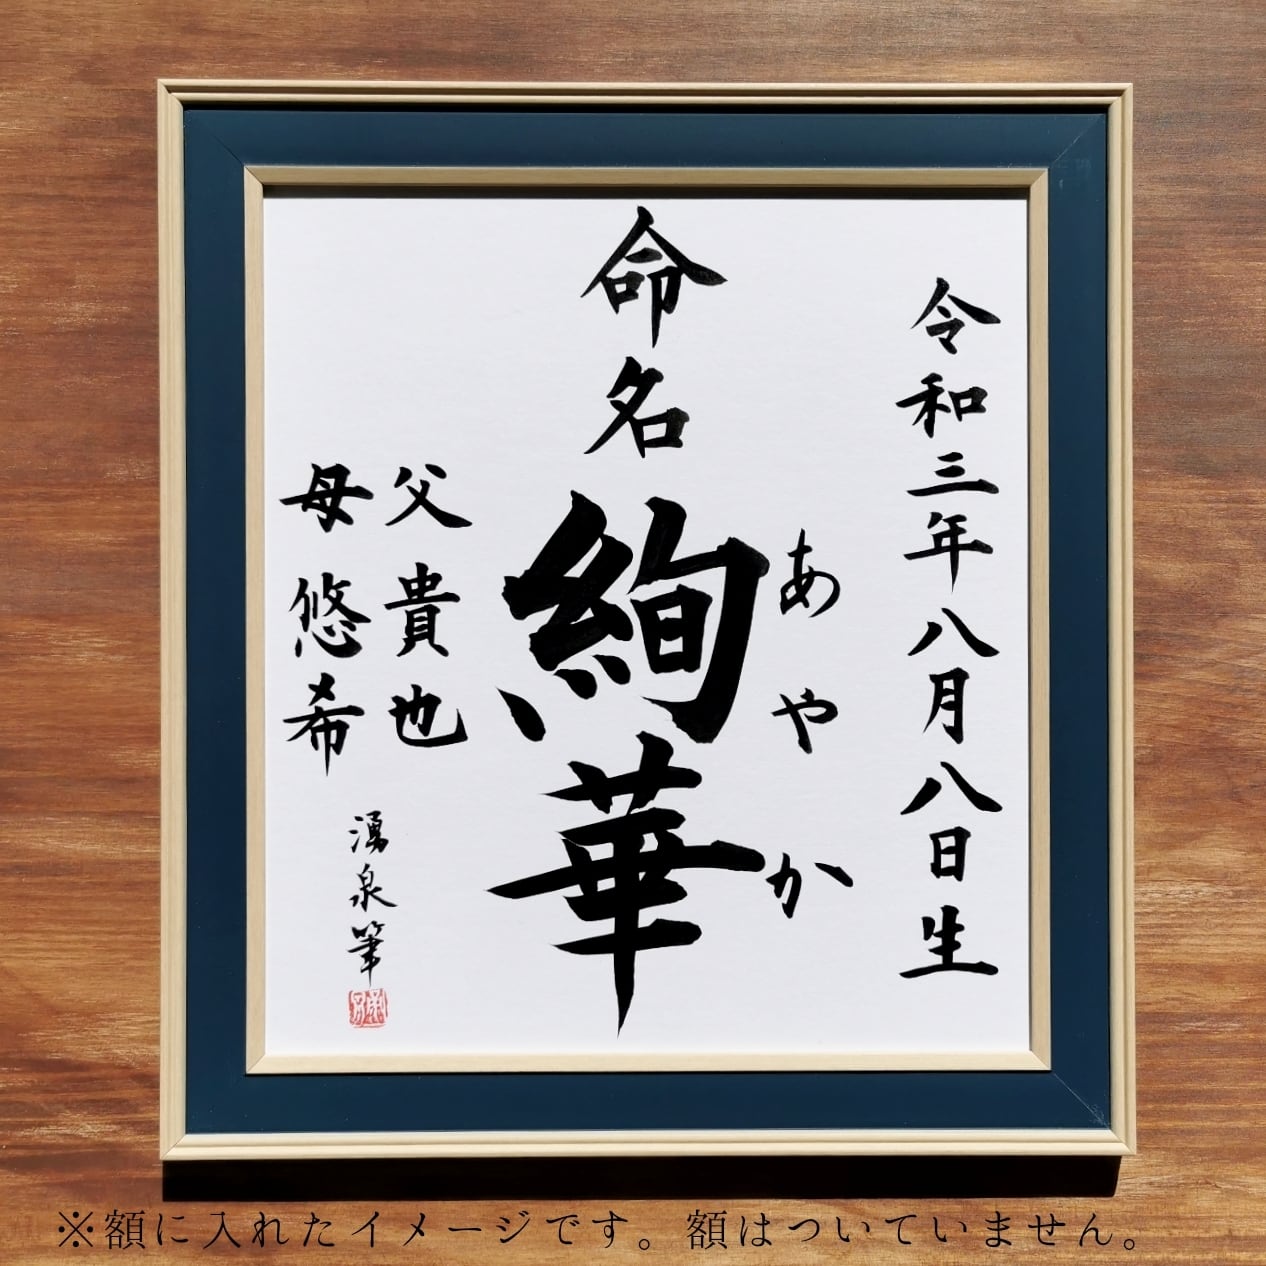 令和三年八月八日生
命名
絢華
あやか
父 貴也
母 悠希
湧泉筆
※額に入れたイメージです。額はついていません。